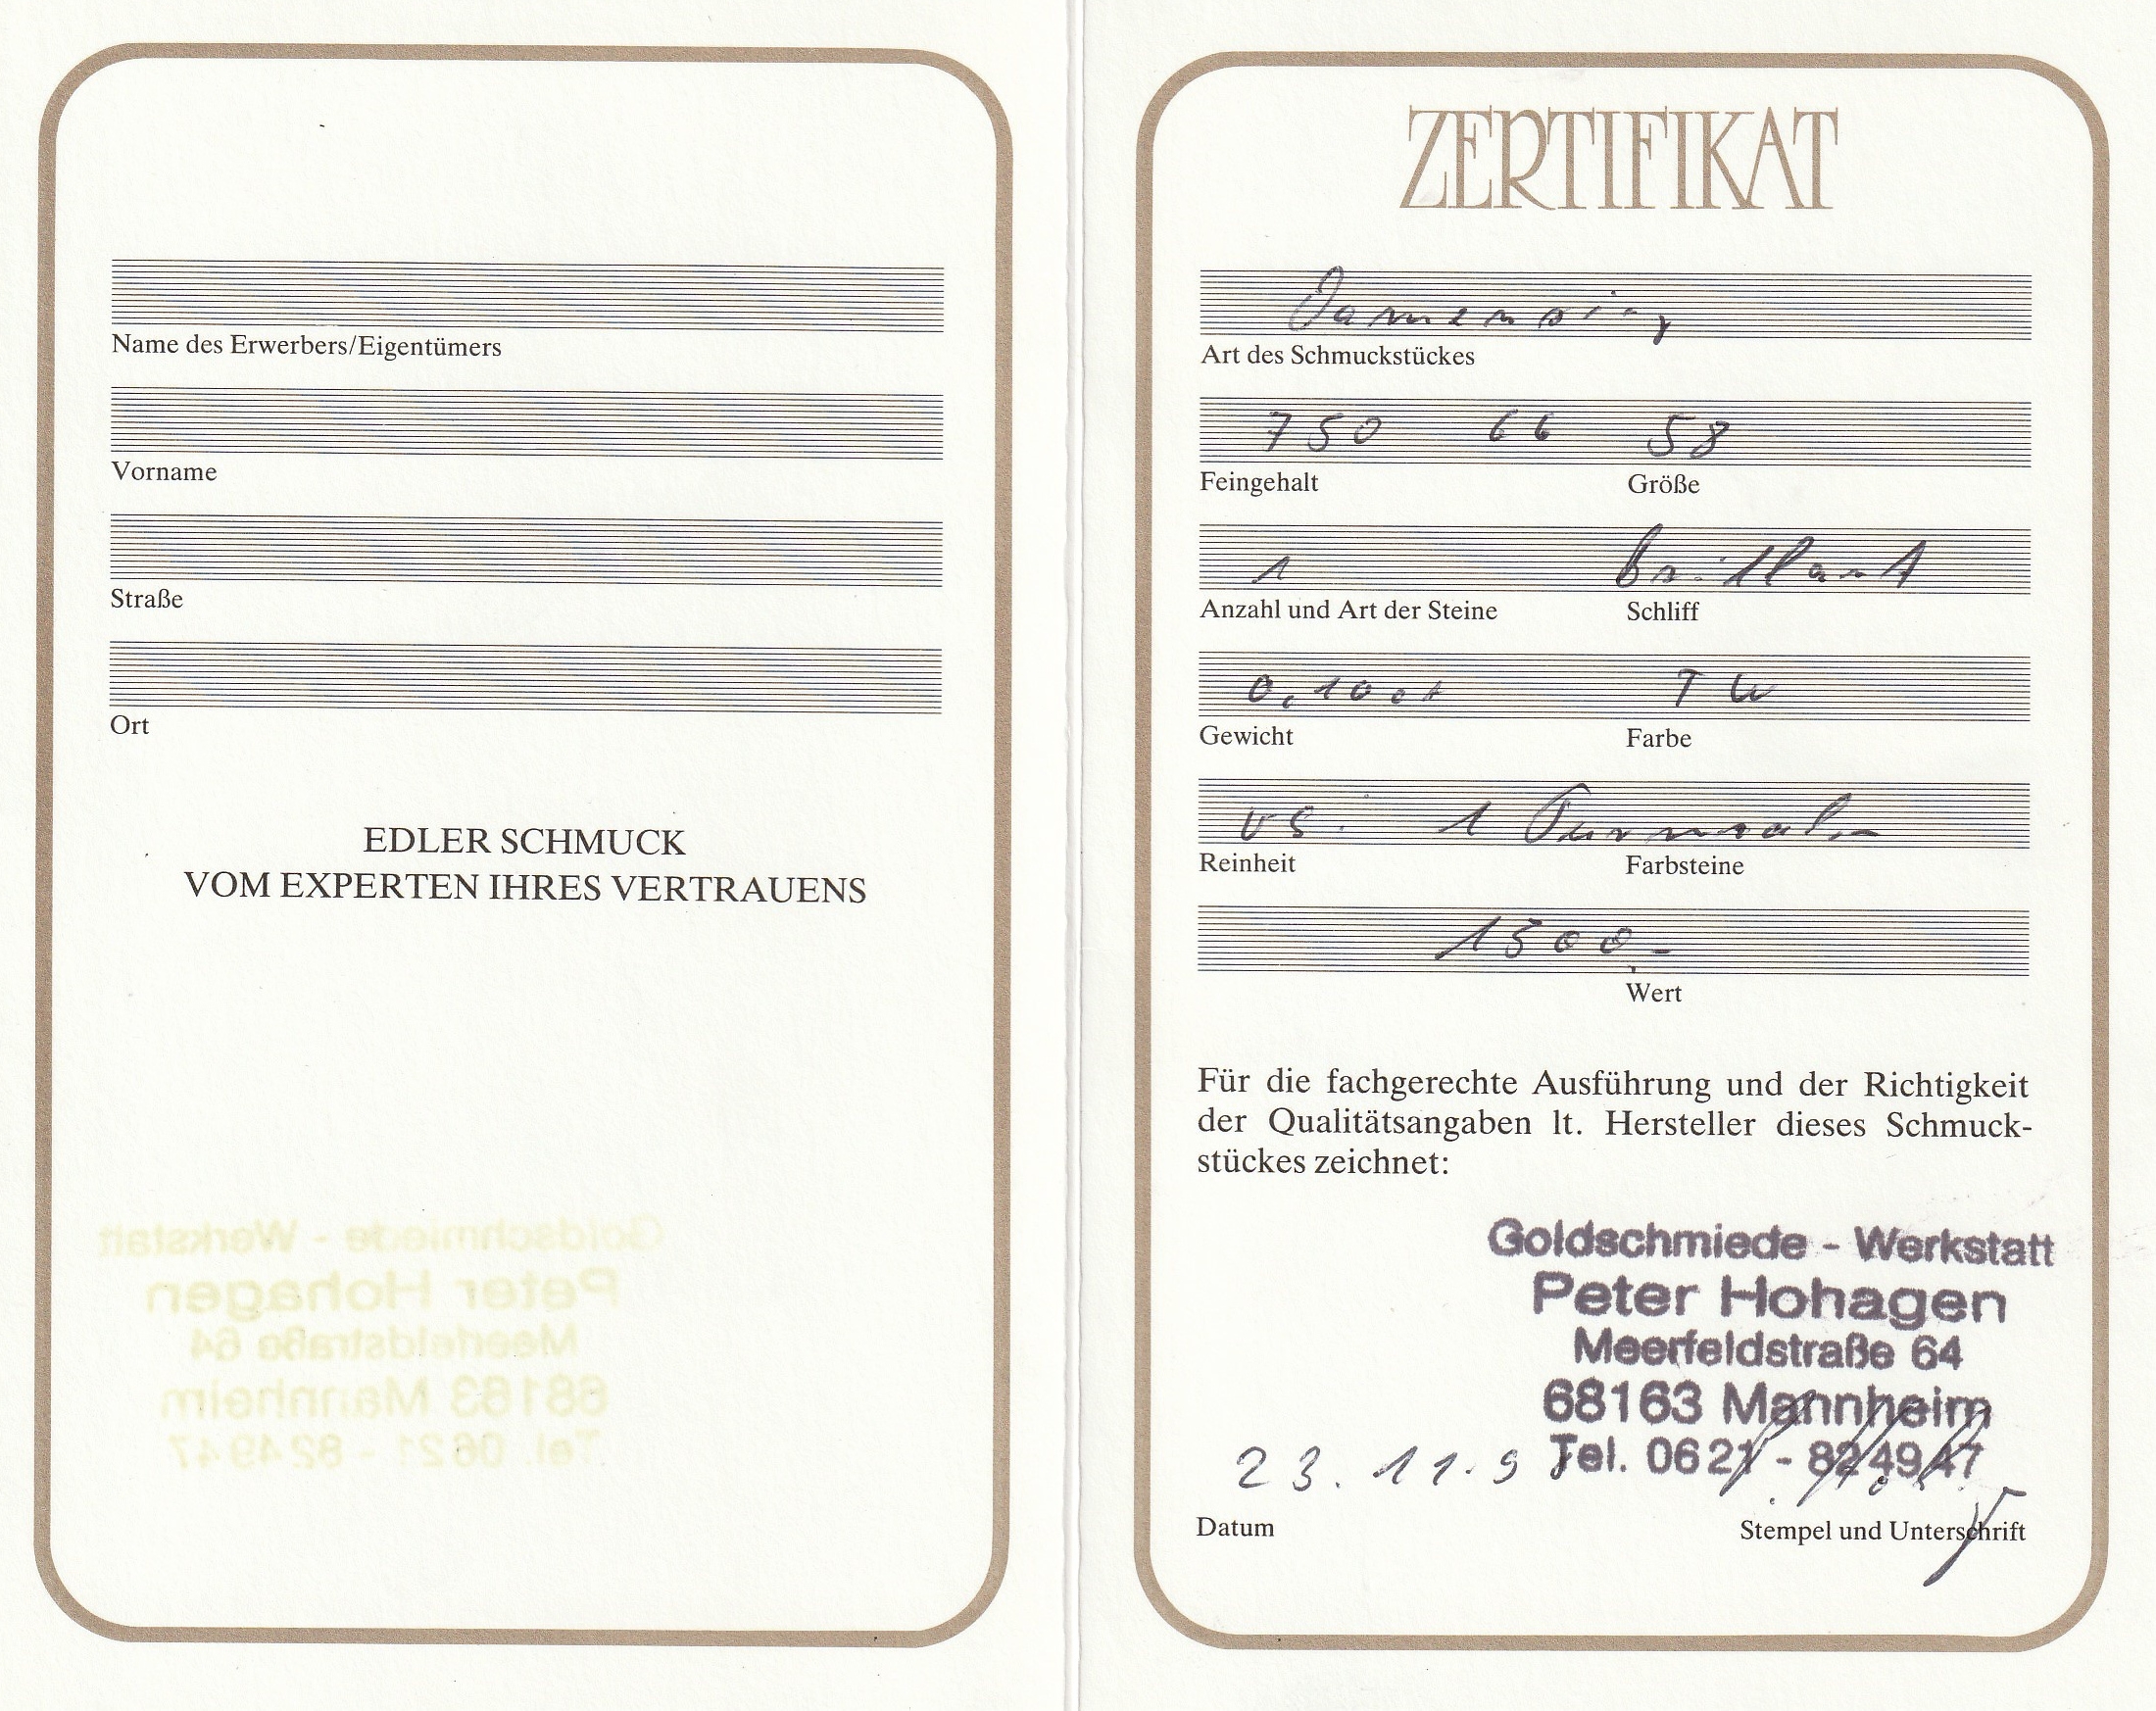 Name des Erwerbers/Eigentümers
Vorname
Straße
Ort
EDLER SCHMUCK
VOM EXPERTEN IHRES VERTRAUENS
ZERTIFIKAT
Damenring
Art des Schmuckstückes
750 66 58
Feingehalt Größe
1 Brillant
Anzahl und Art der Steine Schliff
0,10 ct TW
Gewicht Farbe
vs. 1 Turmalin
Reinheit Farbsteine
1500.-
Wert
Für die fachgerechte Ausführung und der Richtigkeit
der Qualitätsangaben lt. Hersteller dieses Schmuck-
stückes zeichnet:
Goldschmiede - Werkstatt
Peter Hohagen
Meerfeldstraße 64
68163 Mannheim
Tel. 0621 - 824947
23.11.9
Datum Stempel und Unterschrift